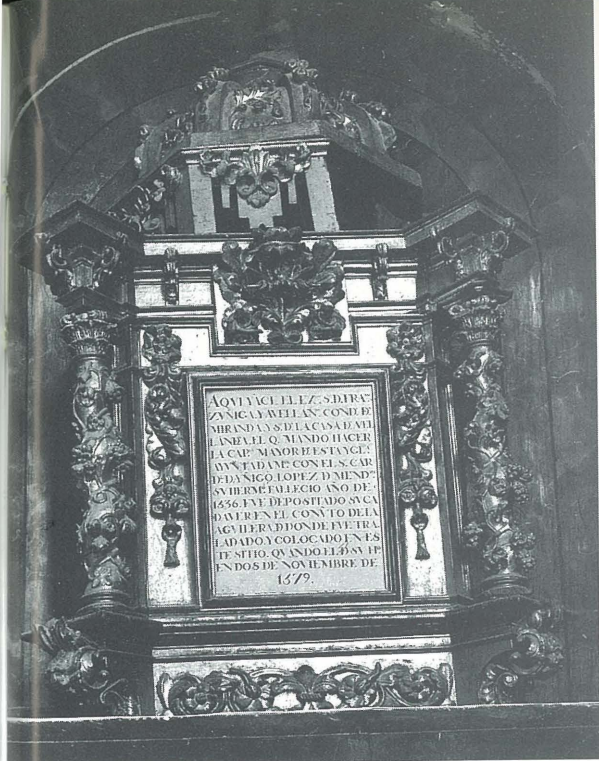 AQVI YACE EL EX.º S. D. FRA.º
ZVÑIGA Y AVELLAN.ª COND. DE
MIRANDA Y S.R D LA CASA D AVEL
LANEDA, EL Q. MANDO HACER
LA CAP.ª MAYOR DE ESTA YGL.ª
AYVNTADAM.E CON EL S. CAR
D.L D. YÑIGO LOPEZ D MEND.ª
SV HERM.º FALLECIO AÑO DE
1536. FVE DEPOSITADO SV CA
DAVER EN EL CONV.TO DE LA
AGVILERA, D DONDE FVE TRA
LADADO, Y COLOCADO EN ES
TE SITIO, QUANDO EL D SV H.º
EN DO 8 DE NOVIEMBRE DE
1579.